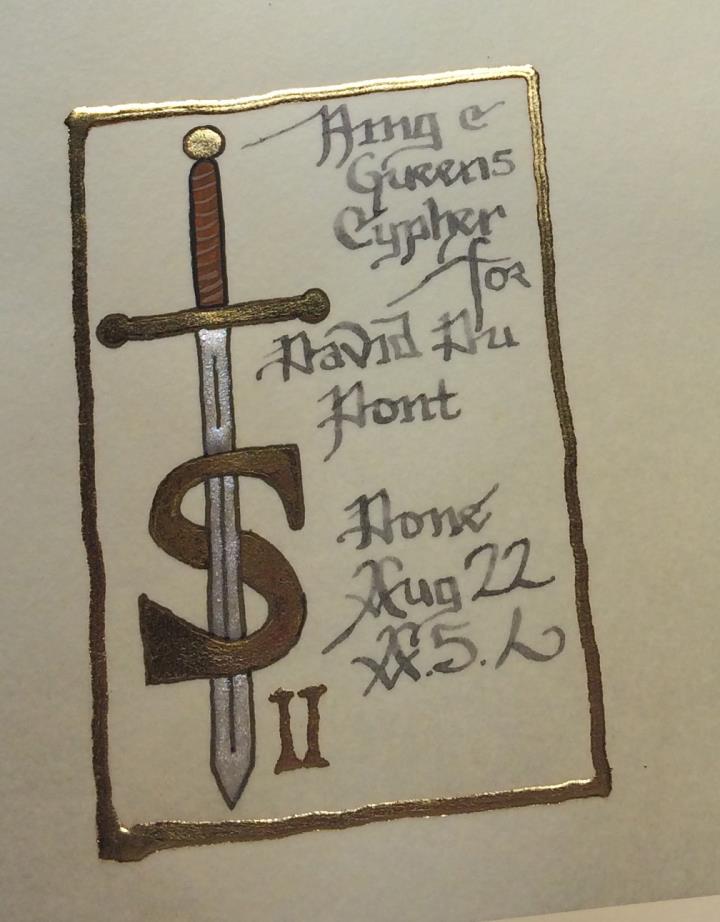 King &
Queens
Cypher
for
David Du
Pont
Done
Aug 22
A.S. L
S
II